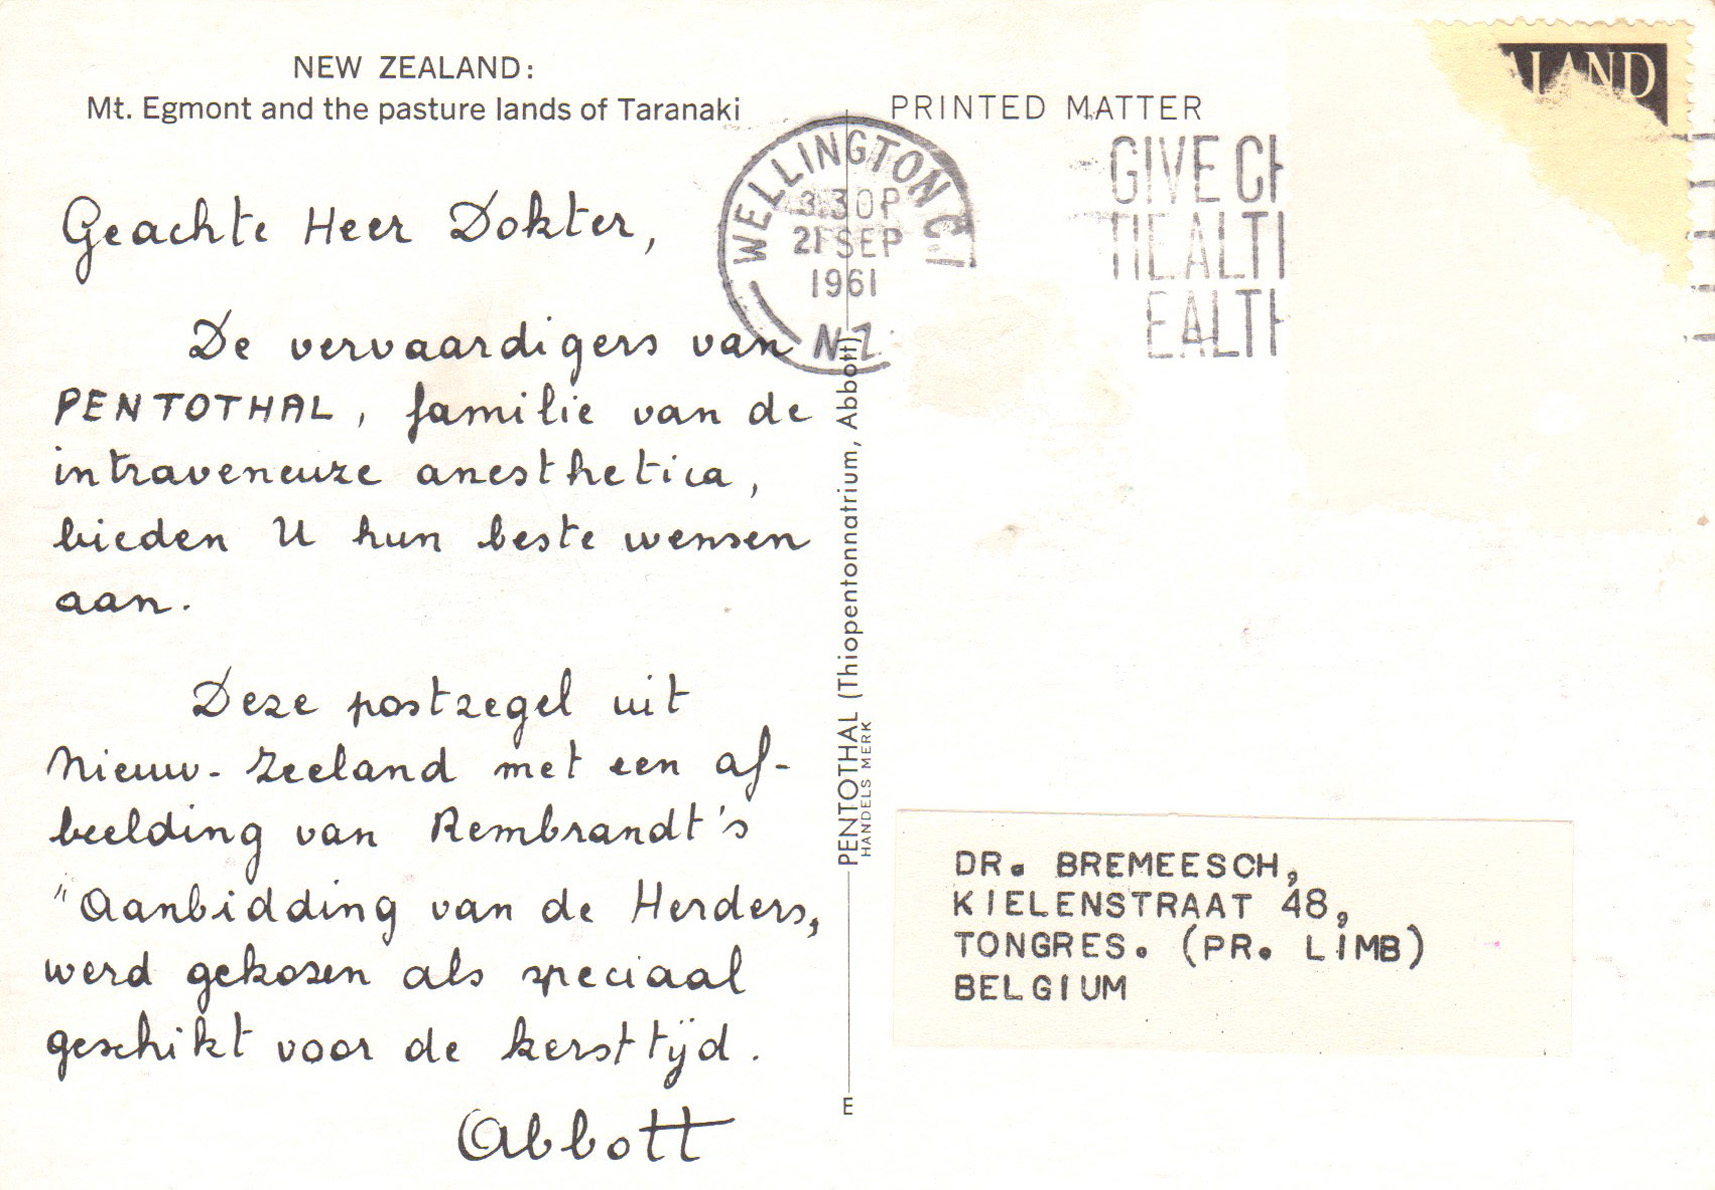 NEW ZEALAND:
Mt. Egmont and the pasture lands of Taranaki
Geachte Heer Dokter,
De vervaardigers van
PENTOTHAL, familie van de
intraveneuze anesthetica,
bieden U hun beste wensen
aan.
Deze postzegel uit
Nieuw-Zeeland met een af-
beelding van Rembrandt's
"Aanbidding van de Herders,
werd gekozen als speciaal
geschikt voor de kersttijd.
Abbott
PENTOTHAL (Thiopentonnatrium, Abbott)
HANDELS MERK
E
PRINTED MATTER
WELLINGTON C.1
3.30P
21 SEP
1961
N.Z.
GIVE CH
HEALTH
EALTH
ALAND
DR. BREMEESCH,
KIELENSTRAAT 48,
TONGRES. (PR. LIMB)
BELGIUM